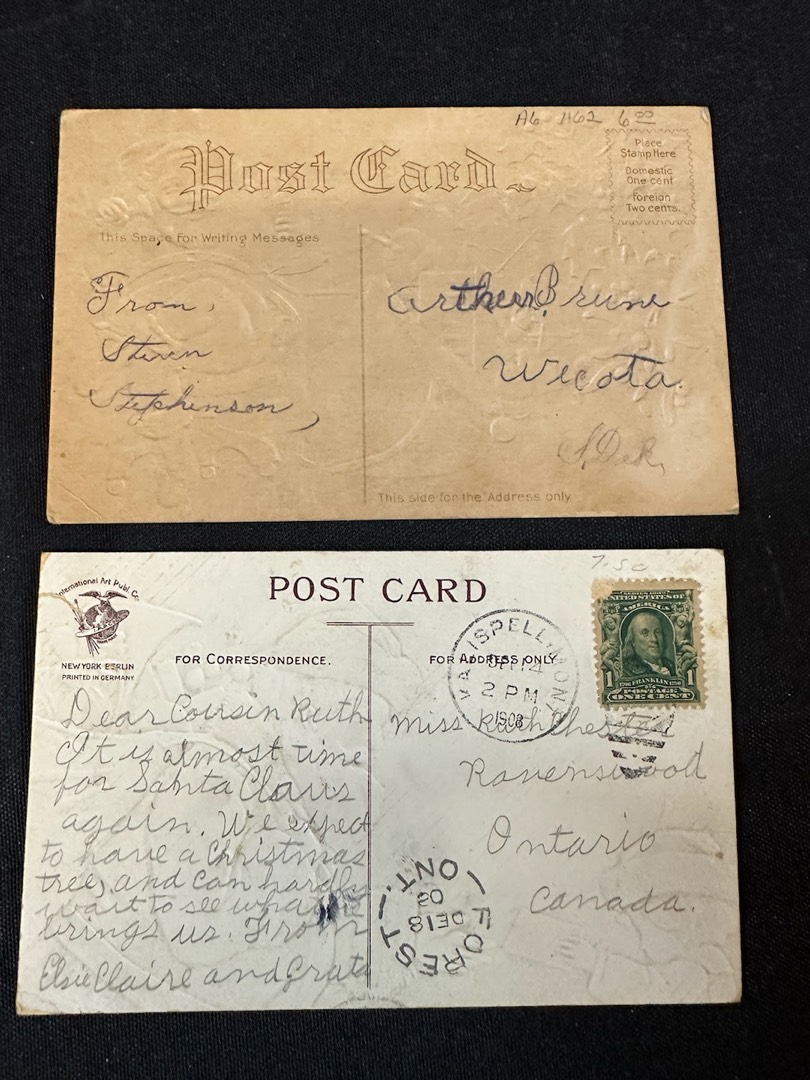 A6 1162 6.00
Post Card
Place
Stamp Here
Domestic
One cent
Foreign
Two cents.
This Space For Writing Messages
From,
Steven
Stephenson,
Arthur Brune
Wecota.
S. Dak.
This side for the Address only
7.50
International Art Publ. Co.
NEW YORK BERLIN
PRINTED IN GERMANY
POST CARD
FOR CORRESPONDENCE.
FOR ADDRESS ONLY
KALISPELL, MONT.
14
2 PM
1908
SERIES 1902
UNITED STATES OF
AMERICA
1 FRANKLIN 1
POSTAGE
ONE CENT
Dear Cousin Ruth
It is almost time
for Santa Claus
again. We expect
to have a Christmas
tree, and can hardly
wait to see what he
brings us. From
Elsie Claire and Greta
Miss Ruth
Ravenswood
Ontario
Canada.
FOREST
DE 18
08
ONT.